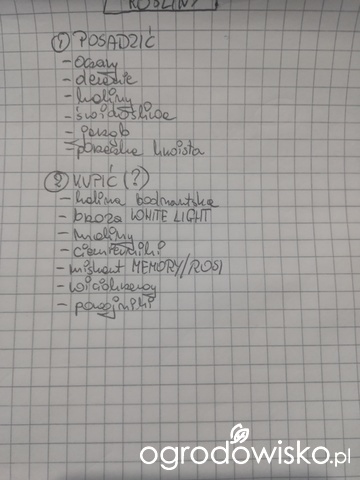 ROŚLINY
① POSADZIĆ
- oczary
- derenie
- kaliny
- świdośliwa
- jarząb
- porzeczka krwista
② KUPIĆ (?)
- kalina bodnantska
- brzoza WHITE LIGHT
- maliny
- ciemierniki
- miskant MEMORY/ROSI
- wiciokrzewy
- powojniki
ogrodowisko.pl